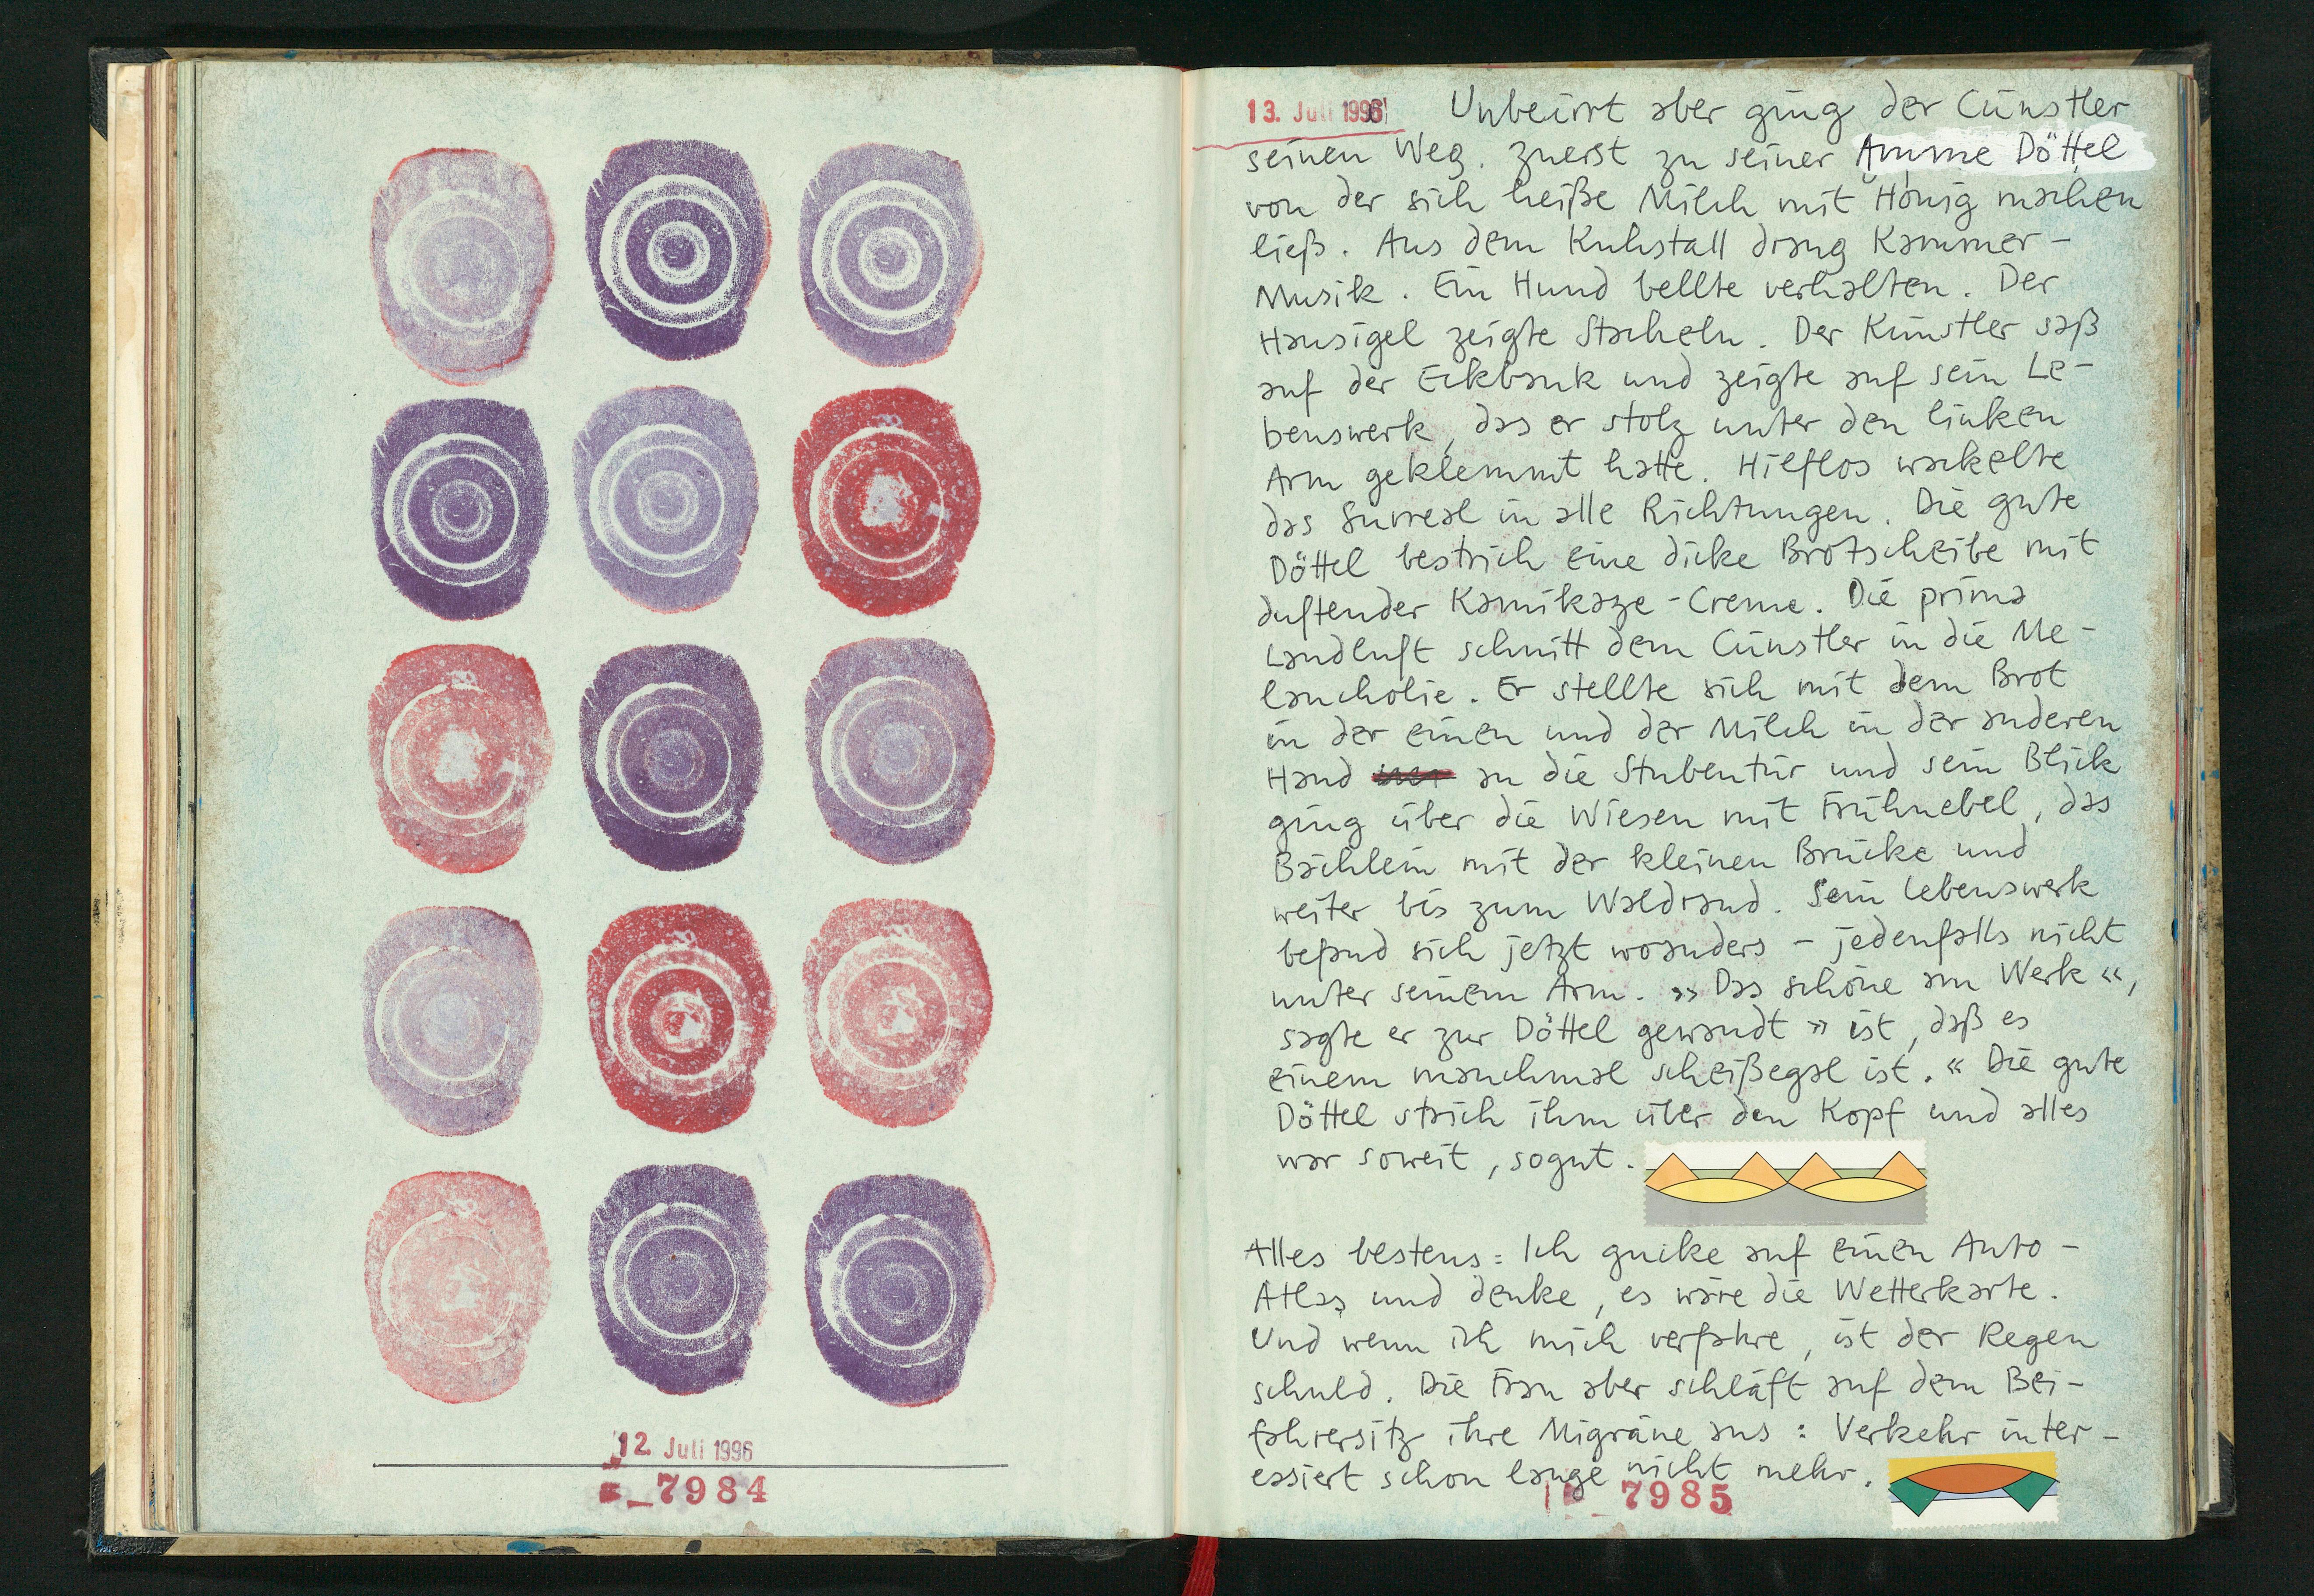 12. Juli 1996
7984
13. Juli 1996 Unbeirrt aber ging der Cünstler
seinen Weg. zuerst zu seiner Amme Döttel
von der sich heiße Milch mit Honig machen
ließ. Aus dem Kuhstall drang Kammer-
Musik. Ein Hund bellte verhalten. Der
Hausigel zeigte Stacheln. Der Künstler saß
auf der Eckbank und zeigte auf sein Le-
benswerk, das er stolz unter den linken
Arm geklemmt hatte. Hilflos wackelte
das Surreal in alle Richtungen. Die gute
Döttel bestrich eine dicke Brotscheibe mit
duftender Kamikaze-Creme. Die prima
Landluft schnitt dem Cünstler in die Me-
lancholie. Er stellte sich mit dem Brot
in der einen und der Milch in der anderen
Hand an die Stubentür und sein Blick
ging über die Wiesen mit Frühnebel, das
Bächlein mit der kleinen Brücke und
weiter bis zum Waldrand. Sein Lebenswerk
befand sich jetzt woanders – jedenfalls nicht
unter seinem Arm. »Das schöne am Werk«,
sagte er zur Döttel gewandt » ist, daß es
einem manchmal scheißegal ist.« Die gute
Döttel strich ihm über den Kopf und alles
war soweit, sogut.
Alles bestens: Ich gucke auf einen Auto-
Atlas und denke, es wäre die Wetterkarte.
Und wenn ich mich verfahre, ist der Regen
schuld. Die Frau aber schläft auf dem Bei-
fahrersitz ihre Migräne aus: Verkehr inter-
essiert schon lange nicht mehr.
7985